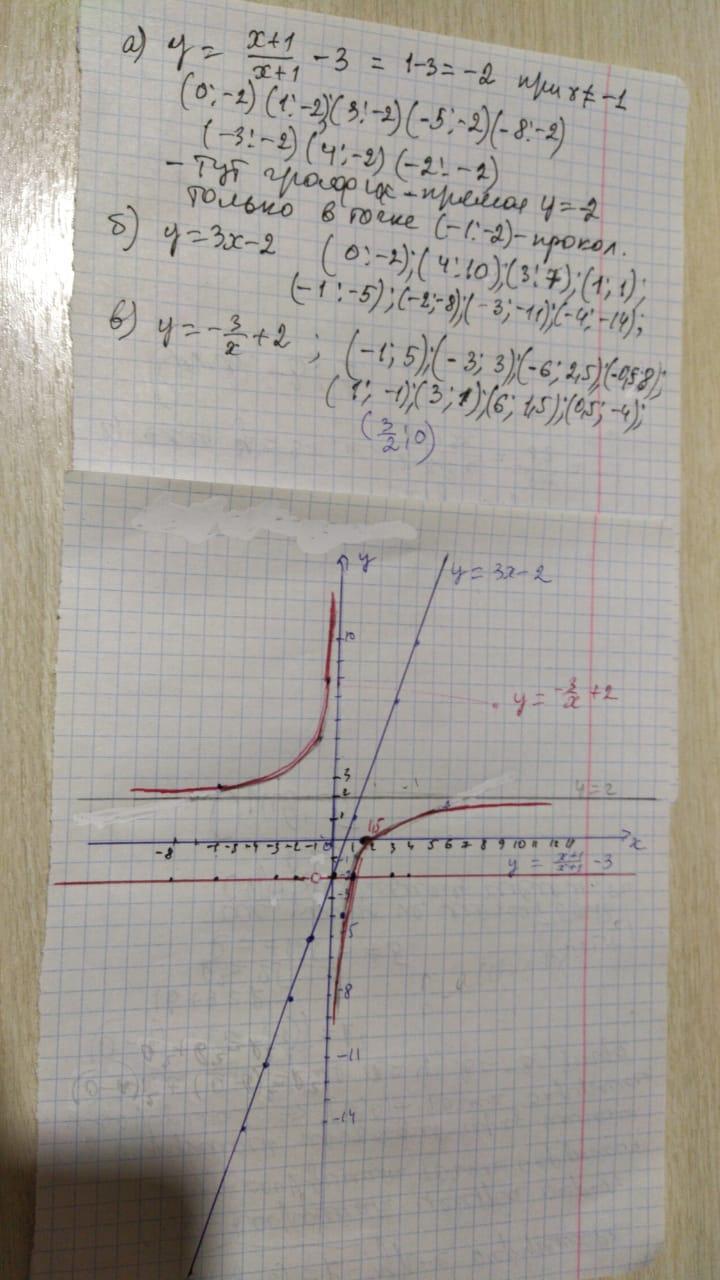 а) y = x+1/x+1 - 3 = 1-3 = -2 при x ≠ -1
(0;-2) (1;-2) (3;-2) (-5;-2) (-8;-2)
(-3;-2) (4;-2) (-2;-2)
- тут график - прямая y=-2
только в точке (-1;-2) - прокол.
б) y=3x-2 (0;-2); (4;10); (3;7); (1;1);
(-1;-5); (-2;-8); (-3;-11); (-4;-14);
в) y = -3/x + 2 ; (-1; 5); (-3; 3); (-6; 2,5); (-0,5;8);
(1; -1); (3; 1); (6; 1,5); (0,5; -4);
(3/2; 0)
y
y = 3x-2
10
y = -3/x + 2
3
2
y = 2
1
1,5
-8 -3 -2 -1 0 1 2 3 4 5 6 7 8 9 10 11 12 x
-1
y = x+1/x+1 - 3
-3
-5
-8
-11
-14